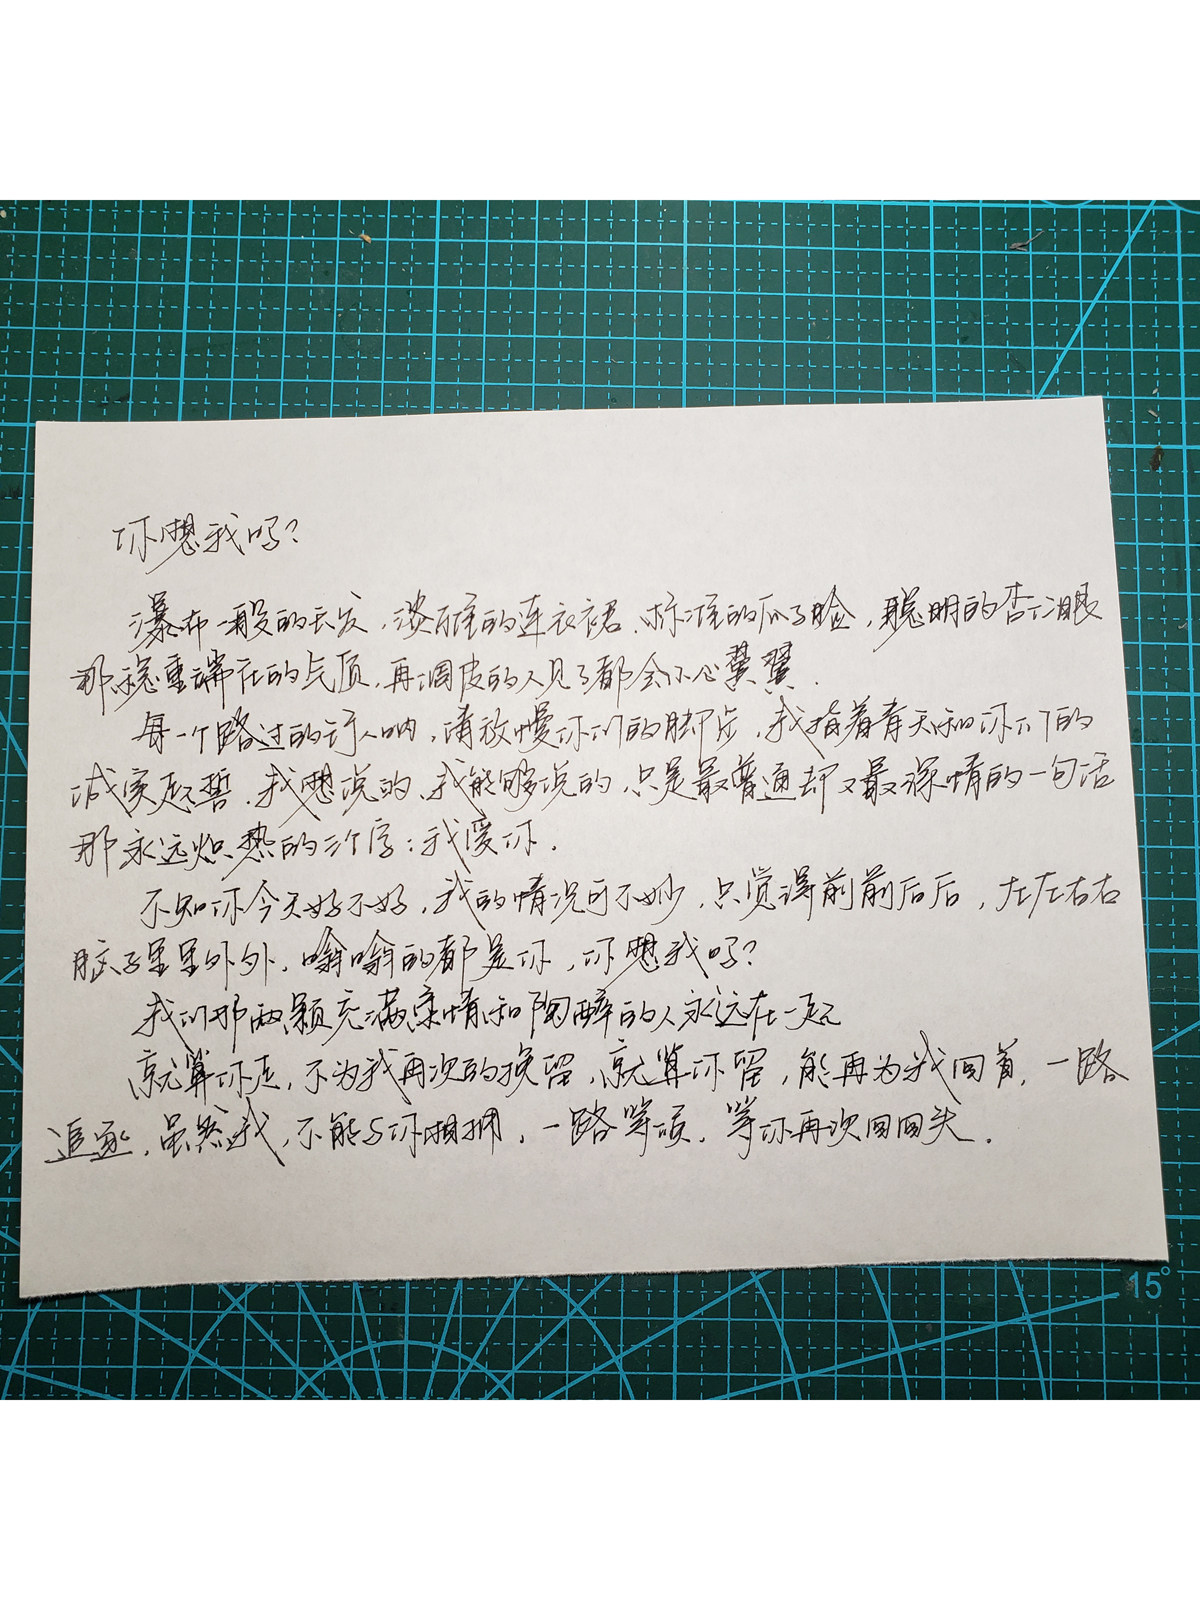 你想我吗？
瀑布一般的长发，淡雅的连衣裙，标准的瓜子脸，聪明的杏仁眼
那稳重端庄的气质，再调皮的人见了都会小心翼翼．
每一个路过的行人呐，请放慢你们的脚步，我指着青天和你们的
诚实起誓．我想说的，我能够说的，只是最普通却又最深情的一句话
那永远炽热的三个字：我爱你．
不知你今天好不好，我的情况可不妙，只觉得前前后后，左左右右
脑子里里外外，嗡嗡的都是你，你想我吗？
我们那两颗充满柔情和陶醉的人永远在一起
就算你走，不为我再次的挽留，就算你留，能再为我回首，一路
追逐，虽然我，不能与你相拥，一路等项，等你再次回回头．
15°